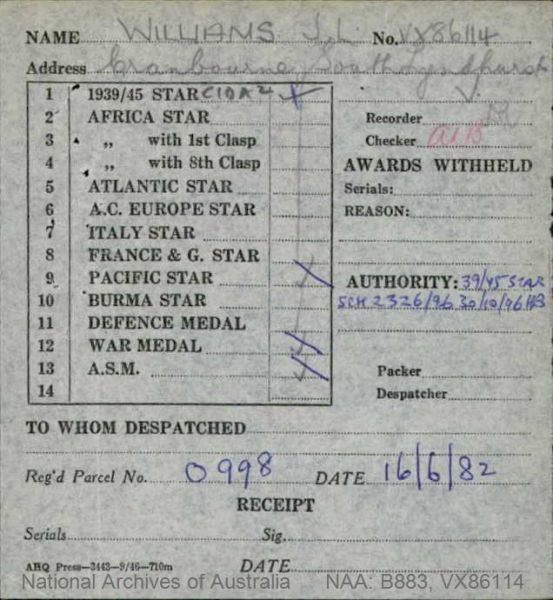 NAME WILLIAMS J.L. No. VX86114
Address Cranbourne, South Lyndhurst
V.
1 1939/45 STAR C10A2 X
2 AFRICA STAR
3 „ with 1st Clasp
4 „ with 8th Clasp
5 ATLANTIC STAR
6 A.C. EUROPE STAR
7 ITALY STAR
8 FRANCE & G. STAR
9 PACIFIC STAR
10 BURMA STAR
11 DEFENCE MEDAL
12 WAR MEDAL
13 A.S.M.
14
Recorder
Checker
AWARDS WITHHELD
Serials:
REASON:
AUTHORITY: 39/45 STAR
SCH 2326/96 30/10/96
Packer
Despatcher
TO WHOM DESPATCHED
Reg'd Parcel No. 0998 DATE 16/6/82
RECEIPT
Serials Sig.
AHQ Press—3443—9/46—710m DATE
National Archives of Australia NAA: B883, VX86114